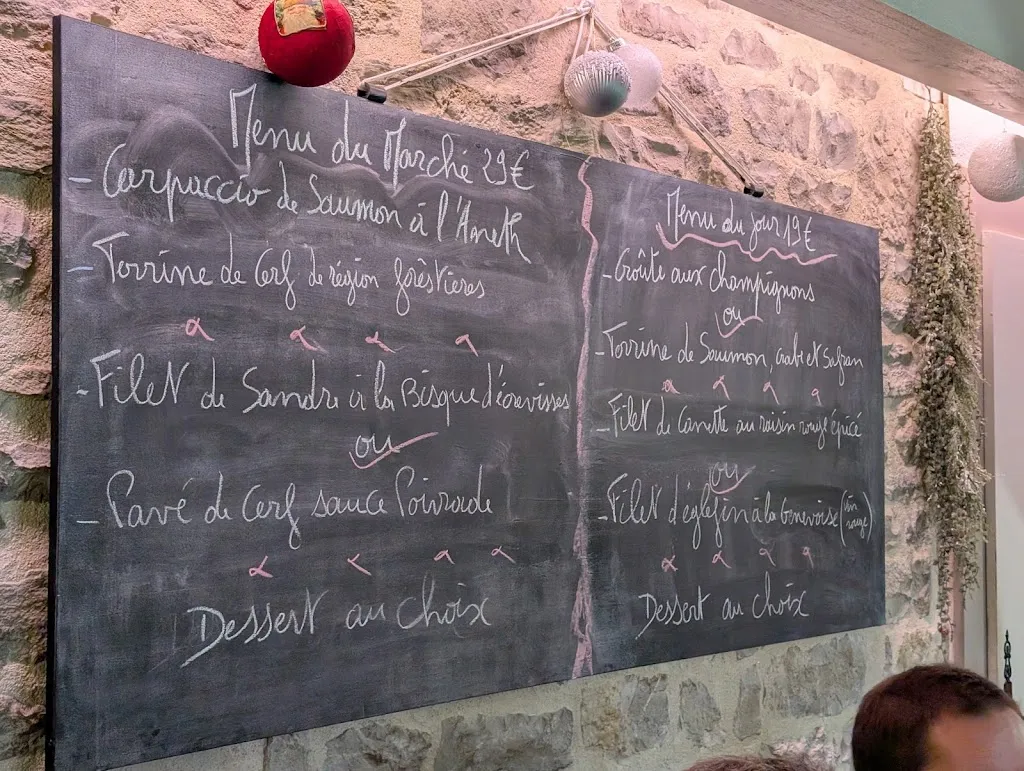 Menu du Marché 29€
- Carpaccio de Saumon à l'Aneth
- Terrine de Cerf de région forêstières
- Filet de Sandre à la Bisque d'écrevisses
ou
- Pavé de Cerf sauce Poivrade
Dessert au choix
Menu du jour 19€
- Croûte aux champignons
ou
- Terrine de Saumon, crabe et Safran
- Filet de Canette au raisin rouge épicé
ou
- Filet d'églefin à la Genevoise (vin rouge)
Dessert au choix